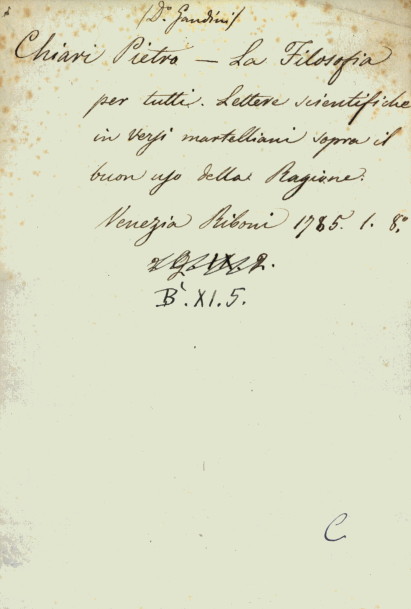 /Do. Gandini/
Chiari Pietro — La Filosofia
per tutti. Lettere scientifiche
in versi martelliani sopra il
buon uso della Ragione.
Venezia Riboni 1785. 1. 8.o
B. XI. 5.
C